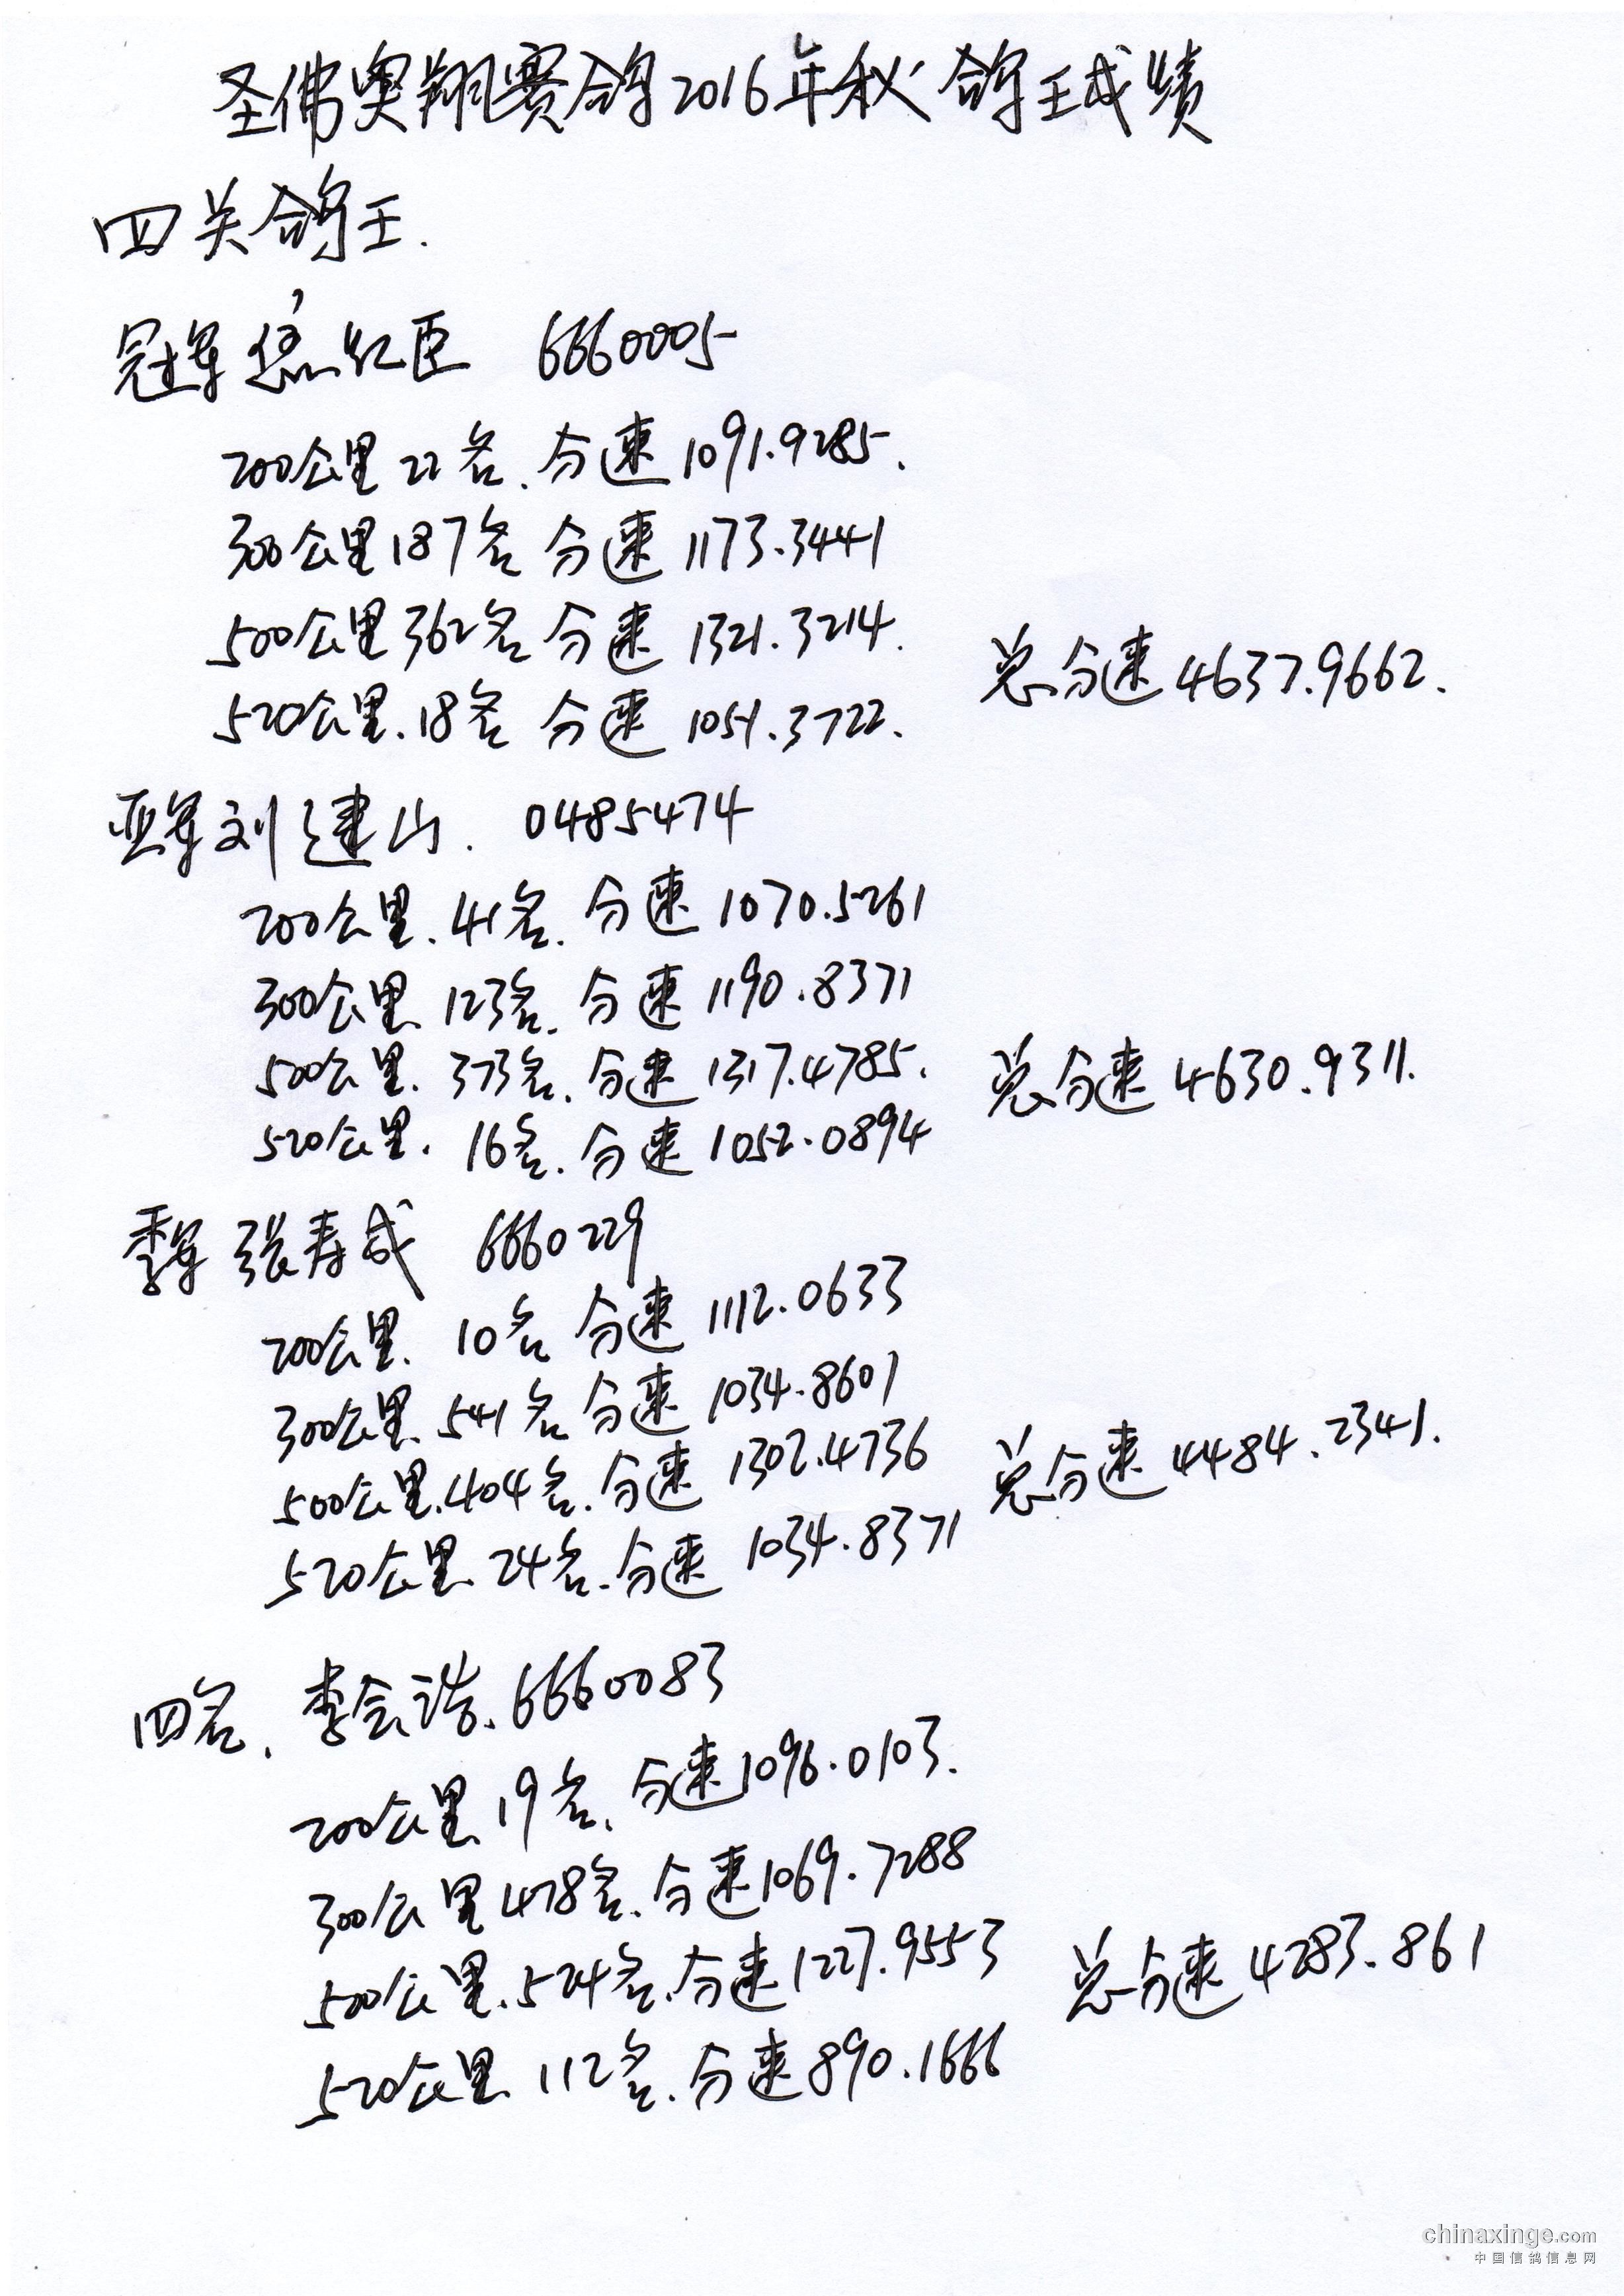 圣佛奥翔赛鸽2016年秋鸽王成绩
四关鸽王.
冠军 红臣 6660005
200公里22名.分速1091.9285.
300公里187名 分速1173.3441
500公里362名 分速1321.3214.
总分速4637.9662.
520公里.18名 分速1051.3722.
亚军刘建山. 0485474
200公里.41名.分速1070.5261
300公里.123名.分速1190.8371
500公里.373名.分速1317.4785.
总分速4630.9311.
520公里.16名.分速1052.0894
季军 张寿成 6660229
200公里.10名 分速1112.0633
300公里.541名 分速1034.8601
500公里.404名.分速1302.4736
总分速4484.2341.
520公里.24名.分速1034.8371
四名.李会浩.6660083
200公里.19名.分速1096.0103.
300公里478名.分速1069.7288
500公里.524名.分速1227.9553
总分速4283.861
520公里.112名.分速890.1666
chinaxinge.com
中国信鸽信息网